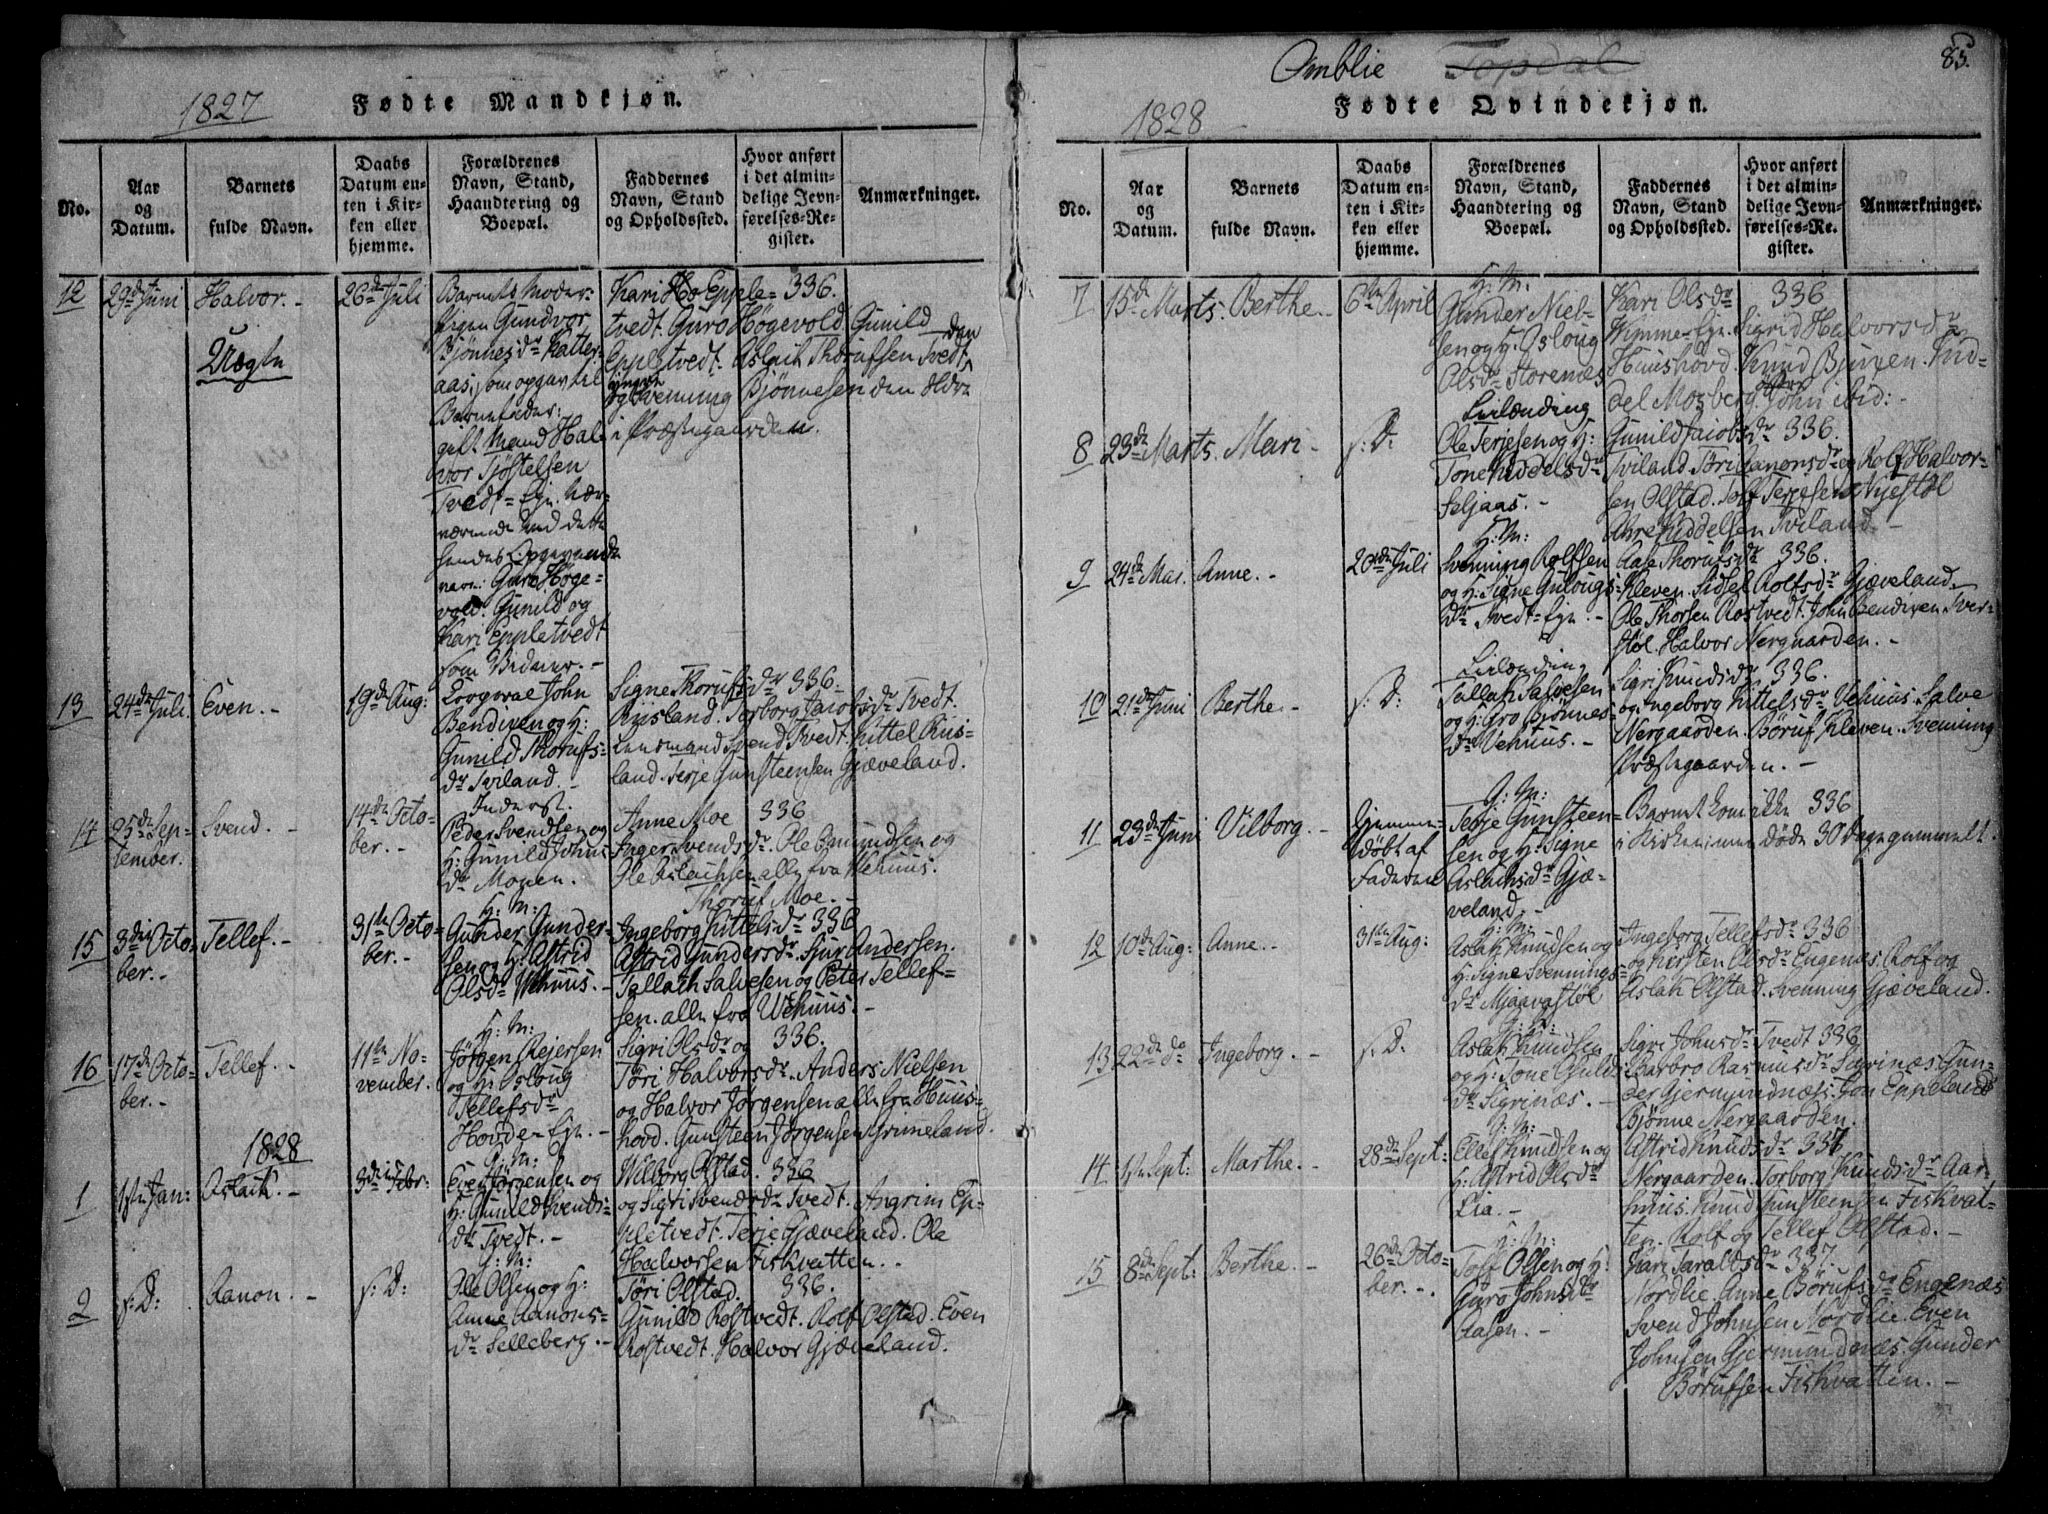 1827
Fødte Mandkjøn.
No.
Aar og Datum.
Barnets fulde Navn.
Daabs Datum enten i Kirken eller hjemme.
Forældrenes Navn, Stand, Haandtering og Boepæl.
Faddernes Navn, Stand og Opholdssted.
Hvor anført i det almindelige Jevnførelses-Register.
Anmærkninger.
12 29de Juni Halvor. - 26de Juli
Uægte
Barnets Moder:
Pigen Gundvor
Bjönnesdr Katter-
aas, som opgav til
Barnefader:
gift Mand Hal-
vor Tjöstelsen
Tvedt-Ejn. Nær-
værende ved dette
hendes Opgivende
vare: Guro Höge-
vold. Gunild og
Kari Eppletvedt
som Vidner. -
Kari Ho Epple- 336.
tvedt. Guro Högevold. Gunild
Eppletvedt. Aslak Thorufsen Tvedt
og Svenning Bjönnesen den
i Præstegaarden.
13 24de Juli. Even. - 19de Aug:
Corporal John
Bendixen og H:
Gunild Thorufs-
dr Tviland. -
Signe Thorufsdr 336-
Riisland. Torborg Jacobsdr Tvedt.
Lensmand Svend Tvedt. Kittel Riis-
land. Terje Gunsteensen Gjæveland.
14 25de Sep-
tember. Svend. - 14de Octo-
ber. -
Inderst.
Peder Svendsen og
H: Gunild Johns
dr Monen.
Anne Moe 336
Inger Svendsdr. Ole Omundsen og
Ole Aslachsen alle fra Wehuus.
Thoruf Moe. -
15 3die Octo-
ber. - Tellef. - 31te Octo-
ber. -
H: M:
Gunder Gunder-
sen og H: Astrid
Olsdr Wehuus. -
Ingeborg Kittelsdr 336
Astrid Gundersdr. Sjur Andersen.
Tellath Salvesen og Peter Tellef-
sen. alle fra Wehuus. -
16 17de Octo-
ber. - Tellef. - 11te No-
vember.
H: M:
Jörgen Rejersen
og H: Asloug
Tellefsdr
Hovde-Ejn. -
Sigri Olsdr og 336.
Töri Halvorsdr. Anders Nielsen
og Halvor Jörgensen alle fra Huus-
hovd. Gunsteen Jörgensen Grimeland.
1828
1 1ste Jan: Aslak. - 3die Febr:
G: M:
Even Jörgensen og
H: Gunild Svends-
dr Tvedt. -
Wilborg Olstad. 336
og Sigri Svendsdr Tvedt. Angrim Ep-
pletvedt. Terje Gjæveland. Ole
Halvorsen Fiskvatten. -
2 s: D: Aanon. - s: D:
G: M:
Ole Olsen og H:
Anne Aanons-
dr Selleberg. -
Töri Olstad. 336.
Gunild Rostvedt. Rolf Olstad. Even
Rostvedt. Halvor Gjæveland.
Omblie Topdal 85.
1828
Fødte Qvindekjøn.
No.
Aar og Datum.
Barnets fulde Navn.
Daabs Datum enten i Kirken eller hjemme.
Forældrenes Navn, Stand, Haandtering og Boepæl.
Faddernes Navn, Stand og Opholdssted.
Hvor anført i det almindelige Jevnførelses-Register.
Anmærkninger.
7 15de Marts. Berthe. - 6te April
H: M:
Gunder Niel-
sen og H: Asloug
Olsdr Storenæs
Kari Olsdr 336
Wimme-Ejn. Sigrid Halvorsdr
Huushovd. Knud Bjorven.
Mosberg. John ibid: -
8 23de Marts. Mari - s: D:
Leilænding
Ole Terjesen og H:
Tone Kiddelsdr
Seljaas. -
Gunild Jacobsdr 336.
Tviland. Töri Aanonsdr og Rolf Halvor-
sen Olstad. Tolf Terjesen Nyestöl
Aanre Kiddelsen Tviland. -
9 24de Mai. Anne. - 20de Juli
H: M:
Svenning Rolfsen
og H: Signe Gulougs-
dr Tvedt-Ejn. -
Aase Thorufsdr 336.
Kleven. Sidsel Rolfsdr Gjæveland.
Ole Thorsen Rostvedt. John Bendixen Tver-
stöl. Halvor Nergaarden. -
10 21de Juni Berthe. - s: D:
Leilænding
Tallak Salvesen
og H: Gro Bjönnes-
dr Vehuus. -
Sigri Knudsdr 336.
og Ingeborg Kittelsdr Vehuus. Salve
Nergaarden. Böruf Kleven. Svenning
Præstegaarden. -
11 23de Juni Vilborg. - Hjemme-
döbt af
Faderen
G: M:
Terje Gunsteen-
sen og H: Signe
Aslaksdr Gjæ-
veland. -
Barnet kom ikke 336
i Kirken, men döde 30 dage gammelt.
12 10de Aug: Anne. - 31te Aug:
H: M:
Aslak Knudsen og
H: Signe Svennings-
dr Mjaavastöl
Ingeborg Tellefsdr 336
og Kirsten Olsdr Engenæs. Rolf og
Aslak Olstad. Svenning Gjæveland.
13 22de do Ingeborg. - s: D:
G: M:
Aslak Knudsen
og H: Tone Gulds-
dr Sigrinæs. -
Sigri Johnsdr Tvedt 336
Barbro Rasmusdr Sigrinæs. Gun-
der Gjermundnæs. Jon Eppeland
Bjönne Nergaarden.
14 1ste Sept: Marthe. - 28de Sept:
G: M:
Ellef Knudsen og
H: Astrid Olsdr
Lia. -
Astrid Knudsdr 337
Nergaarden. Torborg Knudsdr Aar-
huus. Knud Gunsteensen Fiskvat-
ten. Rolf og Tellef Olstad. -
15 8de Sept: Berthe. - 26de Octo-
ber. -
H: M:
Tolf Olsen og H:
Guro Johnsdr
Aasen. -
Kari Taraldsdr 337.
Nordlie. Anne Börufsdr Engenæs
Svend Johnsen Nordlie. Even
Johnsen Gjermundnæs. Gunder
Börufsen Fiskvatten. -